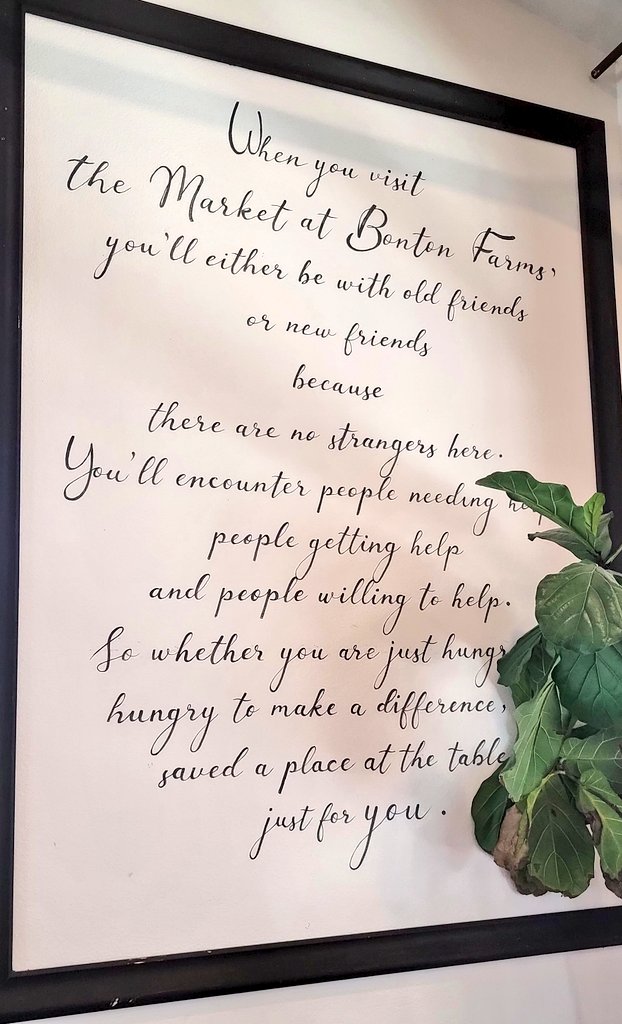 When you visit
the Market at Bonton Farms,
you'll either be with old friends
or new friends
because
there are no strangers here.
You'll encounter people needing
people getting help
and people willing to help.
So whether you are just
hungry to make a difference,
saved a place at the table
just for you.